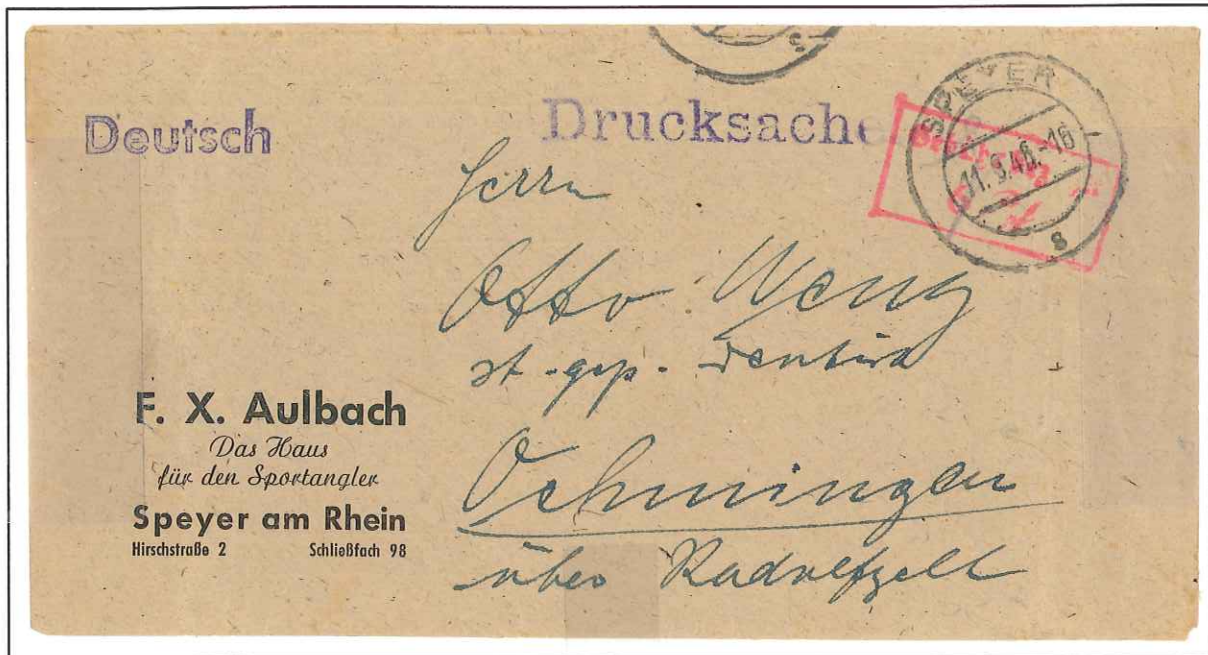 Deutsch
Drucksache
SPEYER
11.9.46.-16
s
Herrn
Otto Weng
st. gep. Dentist
Oehningen
über Radolfzell
F. X. Aulbach
Das Haus
für den Sportangler
Speyer am Rhein
Hirschstraße 2 Schließfach 98